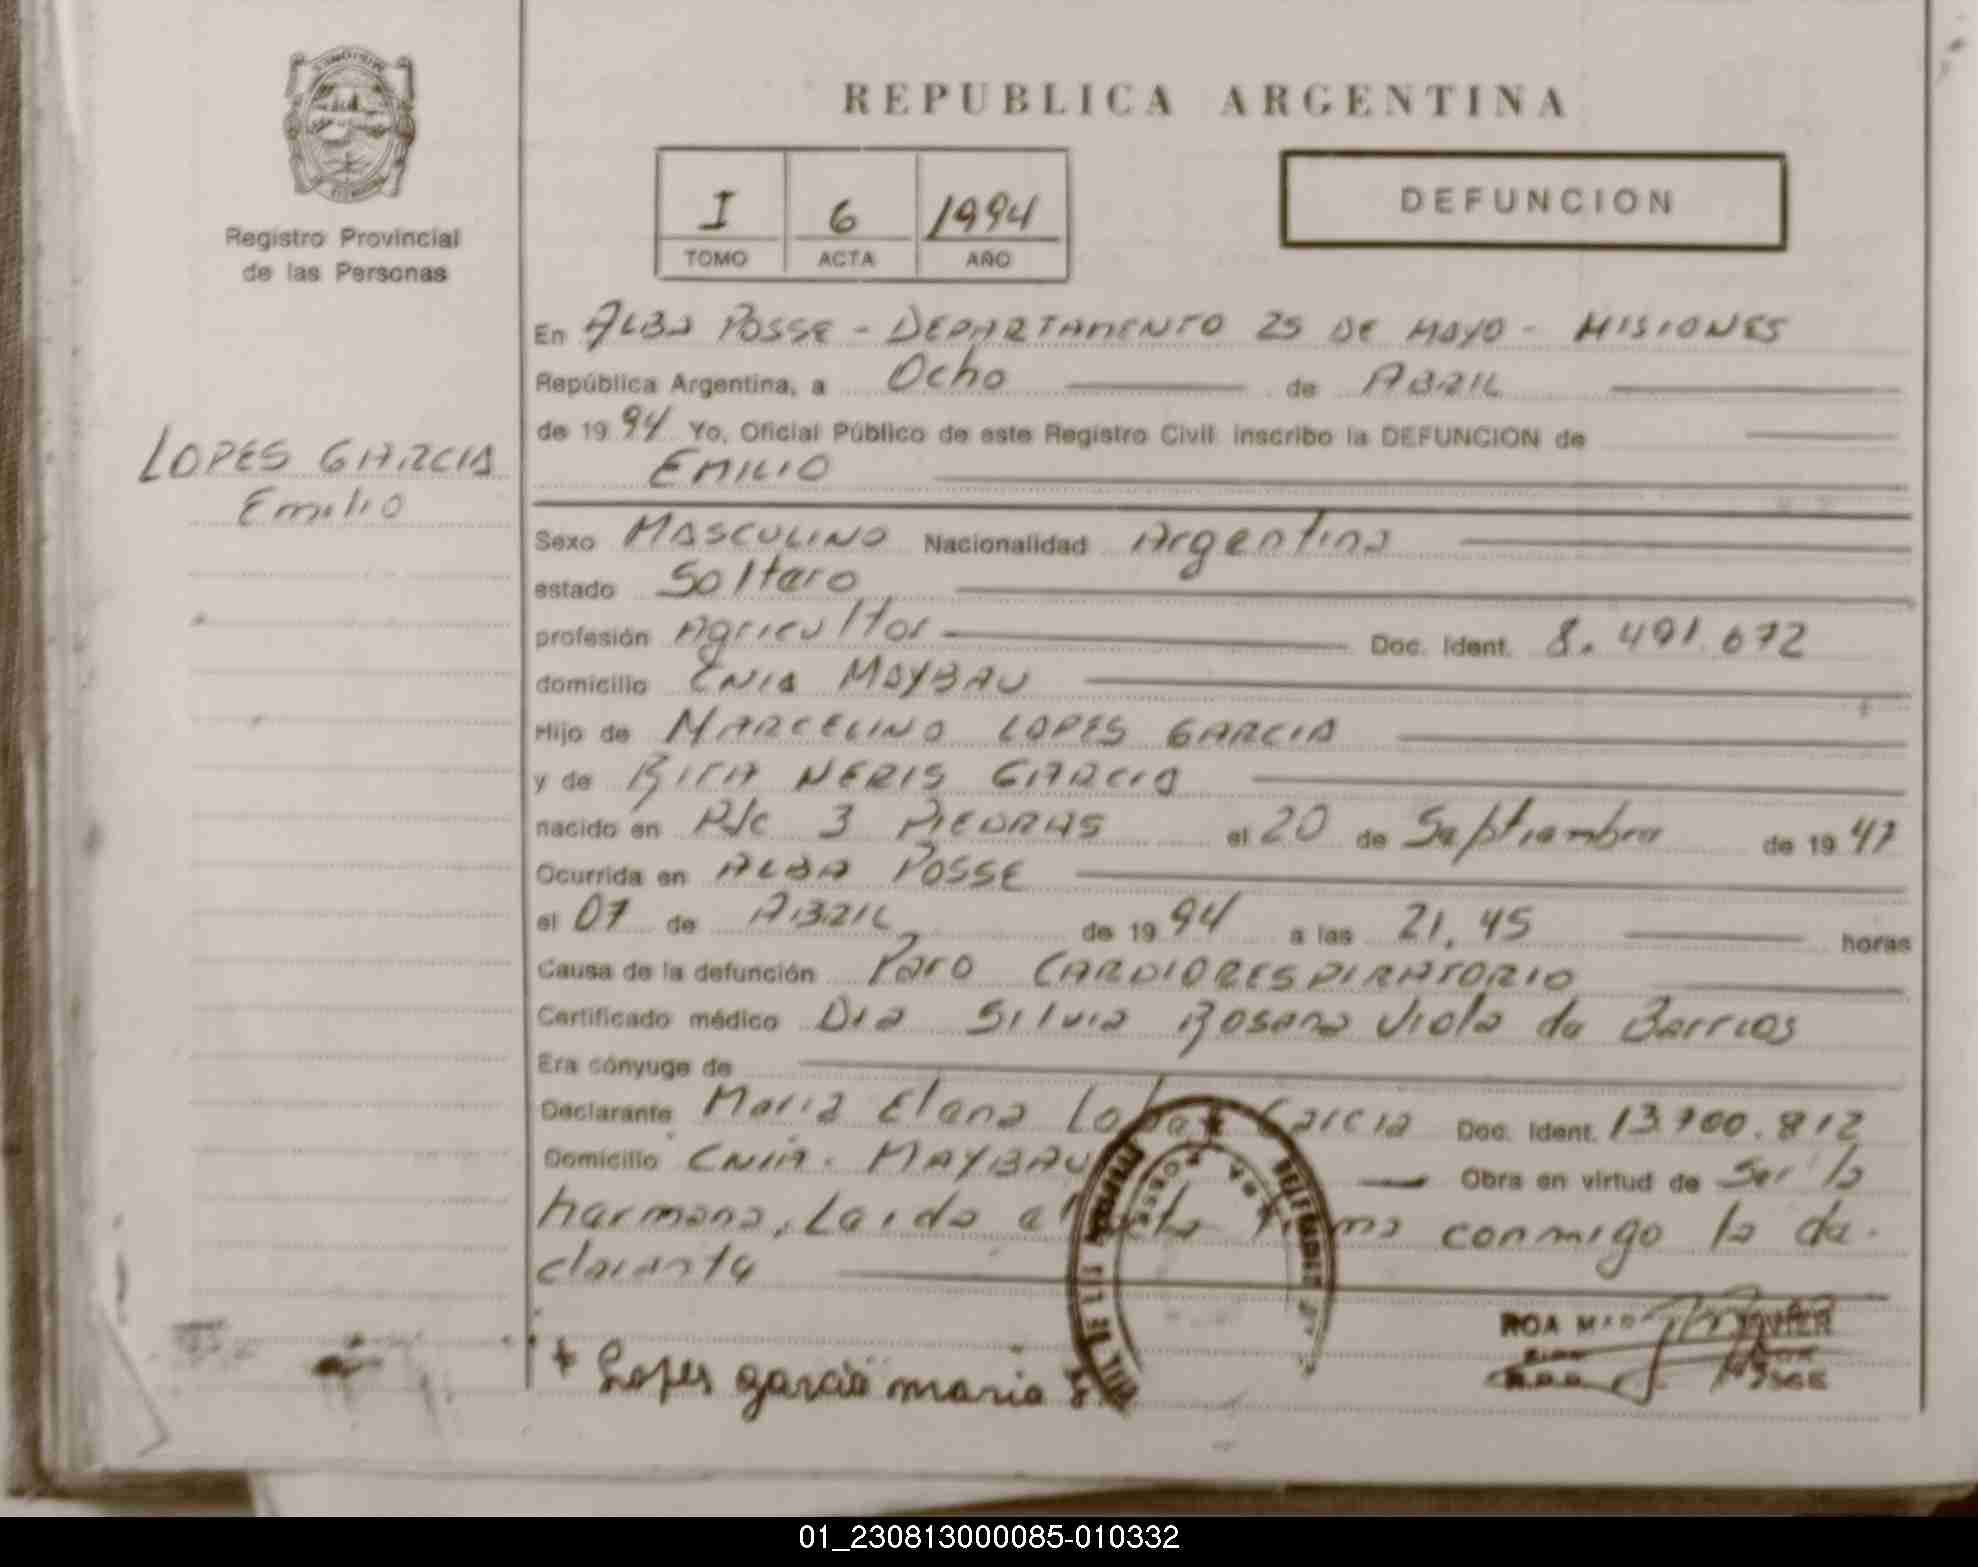 REPUBLICA ARGENTINA
Registro Provincial
de las Personas
I 6 1994
TOMO ACTA AÑO
DEFUNCION
LOPES GARCIA
Emilio
En ALBA POSSE - DEPARTAMENTO 25 DE MAYO - MISIONES
República Argentina, a Ocho de ABRIL
de 1994 Yo, Oficial Público de este Registro Civil inscribo la DEFUNCION de
EMILIO
Sexo MASCULINO Nacionalidad Argentina
estado Soltero
profesión Agricultor Doc. Ident. 8.491.672
domicilio CNIA MAYBAU
Hijo de MARCELINO LOPES GARCIA
y de RITA NERIS GARCIA
nacido en 3 PIEDRAS el 20 de Septiembre de 1947
Ocurrida en ALBA POSSE
el 07 de ABRIL de 1994 a las 21,45 horas
Causa de la defunción Paro CARDIORESPIRATORIO
Certificado médico Dra Silvia Rosana Viola de Barrios
Era cónyuge de
Declarante Maria Elena Garcia Doc. Ident. 13.700.812
Domicilio CNIA. MAYBAU Obra en virtud de Ser la
hermana, Leida conmigo la de-
clarante
Lopes garcia maria
ROA
01_230813000085-010332